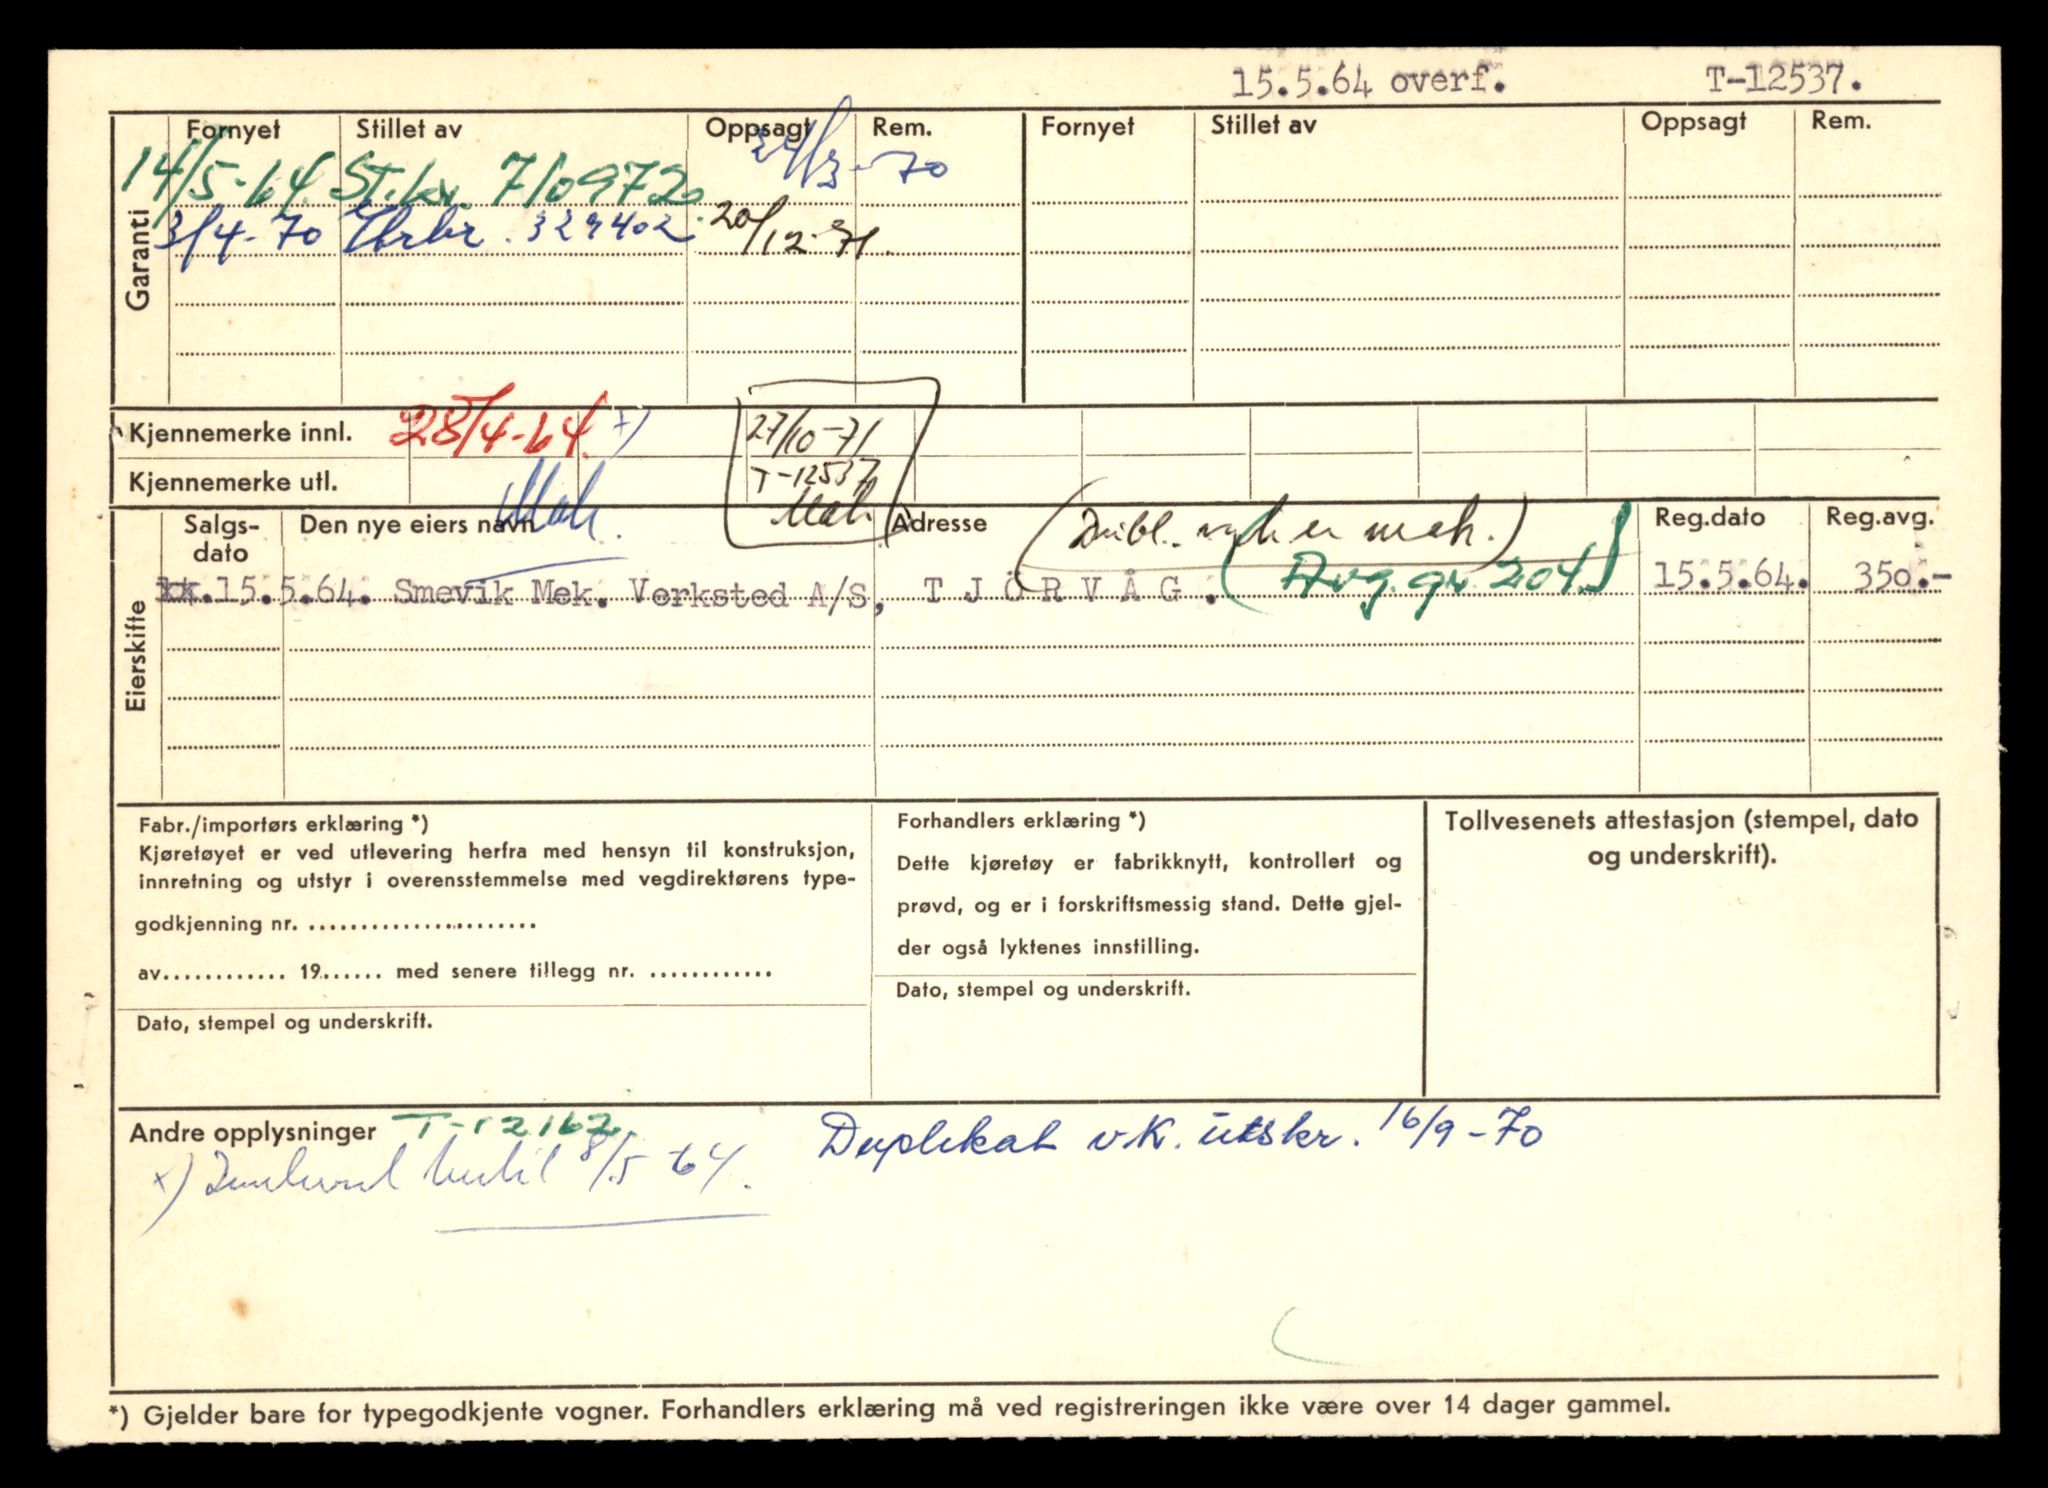 15.5.64 overf. T-12537.
Garanti
Fornyet Stillet av Oppsagt Rem. Fornyet Stillet av Oppsagt Rem.
14/5-64. St.br. 7109720. 24/3-70
3/4-70 329402 20/12-71.
Kjennemerke innl. 28/4-64. x) 27/10-71
Kjennemerke utl. T-12537
Mah. Mah
Eierskifte
Salgs-
dato
Den nye eiers navn Adresse (Dubl. mah.) Reg.dato Reg.avg.
xx.15.5.64. Smevik Mek. Verksted A/S, T J Ö R V Å G . (Avg. gr. 204.) 15.5.64. 350.-
Fabr./importørs erklæring *)
Kjøretøyet er ved utlevering herfra med hensyn til konstruksjon,
innretning og utstyr i overensstemmelse med vegdirektørens type-
godkjenning nr. ......................
av............ 19...... med senere tillegg nr. ............
Dato, stempel og underskrift.
Forhandlers erklæring *)
Dette kjøretøy er fabrikknytt, kontrollert og
prøvd, og er i forskriftsmessig stand. Dette gjel-
der også lyktenes innstilling.
Dato, stempel og underskrift.
Tollvesenets attestasjon (stempel, dato
og underskrift).
Andre opplysninger T-12162 Duplikat v.K. utskr. 16/9-70
x) 8/5-64.
*) Gjelder bare for typegodkjente vogner. Forhandlers erklæring må ved registreringen ikke være over 14 dager gammel.